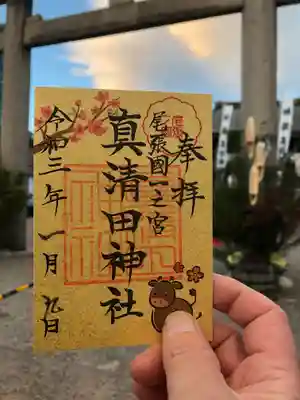 奉拝
尾張國一之宮
真清田神社
令和三年一月九日